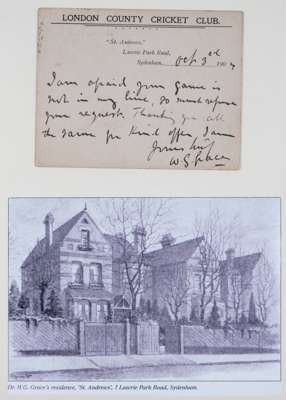 LONDON COUNTY CRICKET CLUB.
"St. Andrews,"
Lawrie Park Road,
Sydenham.
Oct 3rd 190
I am afraid your Game is
not in my line, so must refuse
your request. Thanking you all
the same for kind offer, I am
Yours truly
W G Grace
Dr. W.G. Grace's residence, 'St. Andrews', 7 Lawrie Park Road, Sydenham.